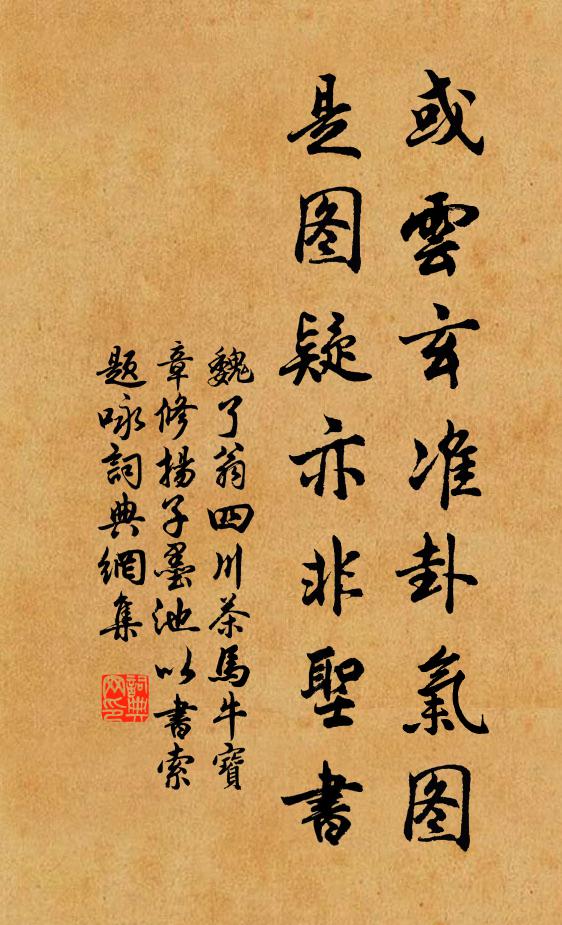 或雲玄准卦氣图
是图疑亦非聖書
魏了翁四川茶馬牛寶
章修揚子墨池以書索
题咏詞典網集
詞典網印